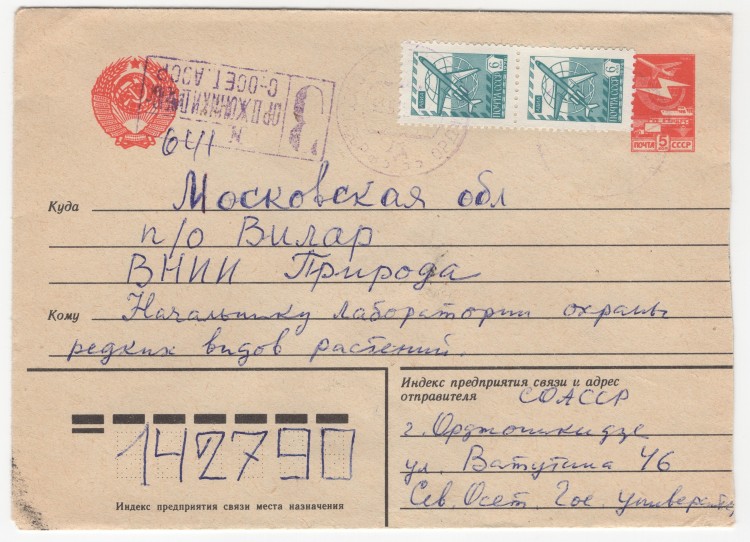 ОРДЖОНИКИДЗЕ
С-ОСЕТ. АССР
N
641
6
6
ПОЧТА 5 СССР
Куда Московская обл
п/о Вилар
ВНИИ Природа
Кому Начальнику лаборатории охраны
редких видов растений.
142790
Индекс предприятия связи места назначения
Индекс предприятия связи и адрес
отправителя СОАССР
г. Орджоникидзе
ул. Ватутина 46
Сев. Осет. Гос. университет